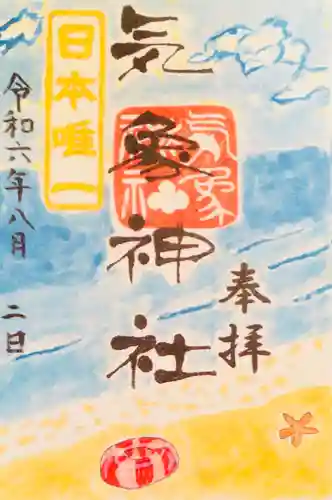 奉拝
気象神社
気象神社
日本唯一
令和六年八月 二日